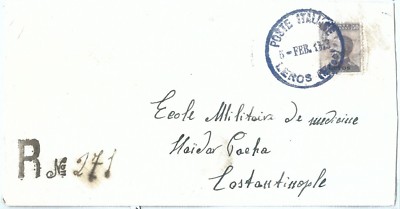 POSTE ITALIANE
6 - FEB. 19
LEROS (Egeo)
Ecole Militaire de medicine
Haïdar Pacha
Costantinople
R № 271